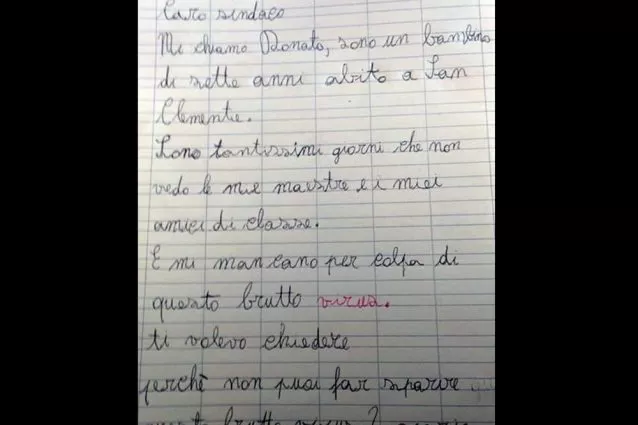 Caro sindaco
Mi chiamo Donato, sono un bambino
di sette anni abito a San
Clemente.
Sono tantissimi giorni che non
vedo le mie maestre e i miei
amici di classe.
E mi mancano per colpa di
questo brutto virus.
ti volevo chiedere
perchè non puoi far sparire
brutto virus?